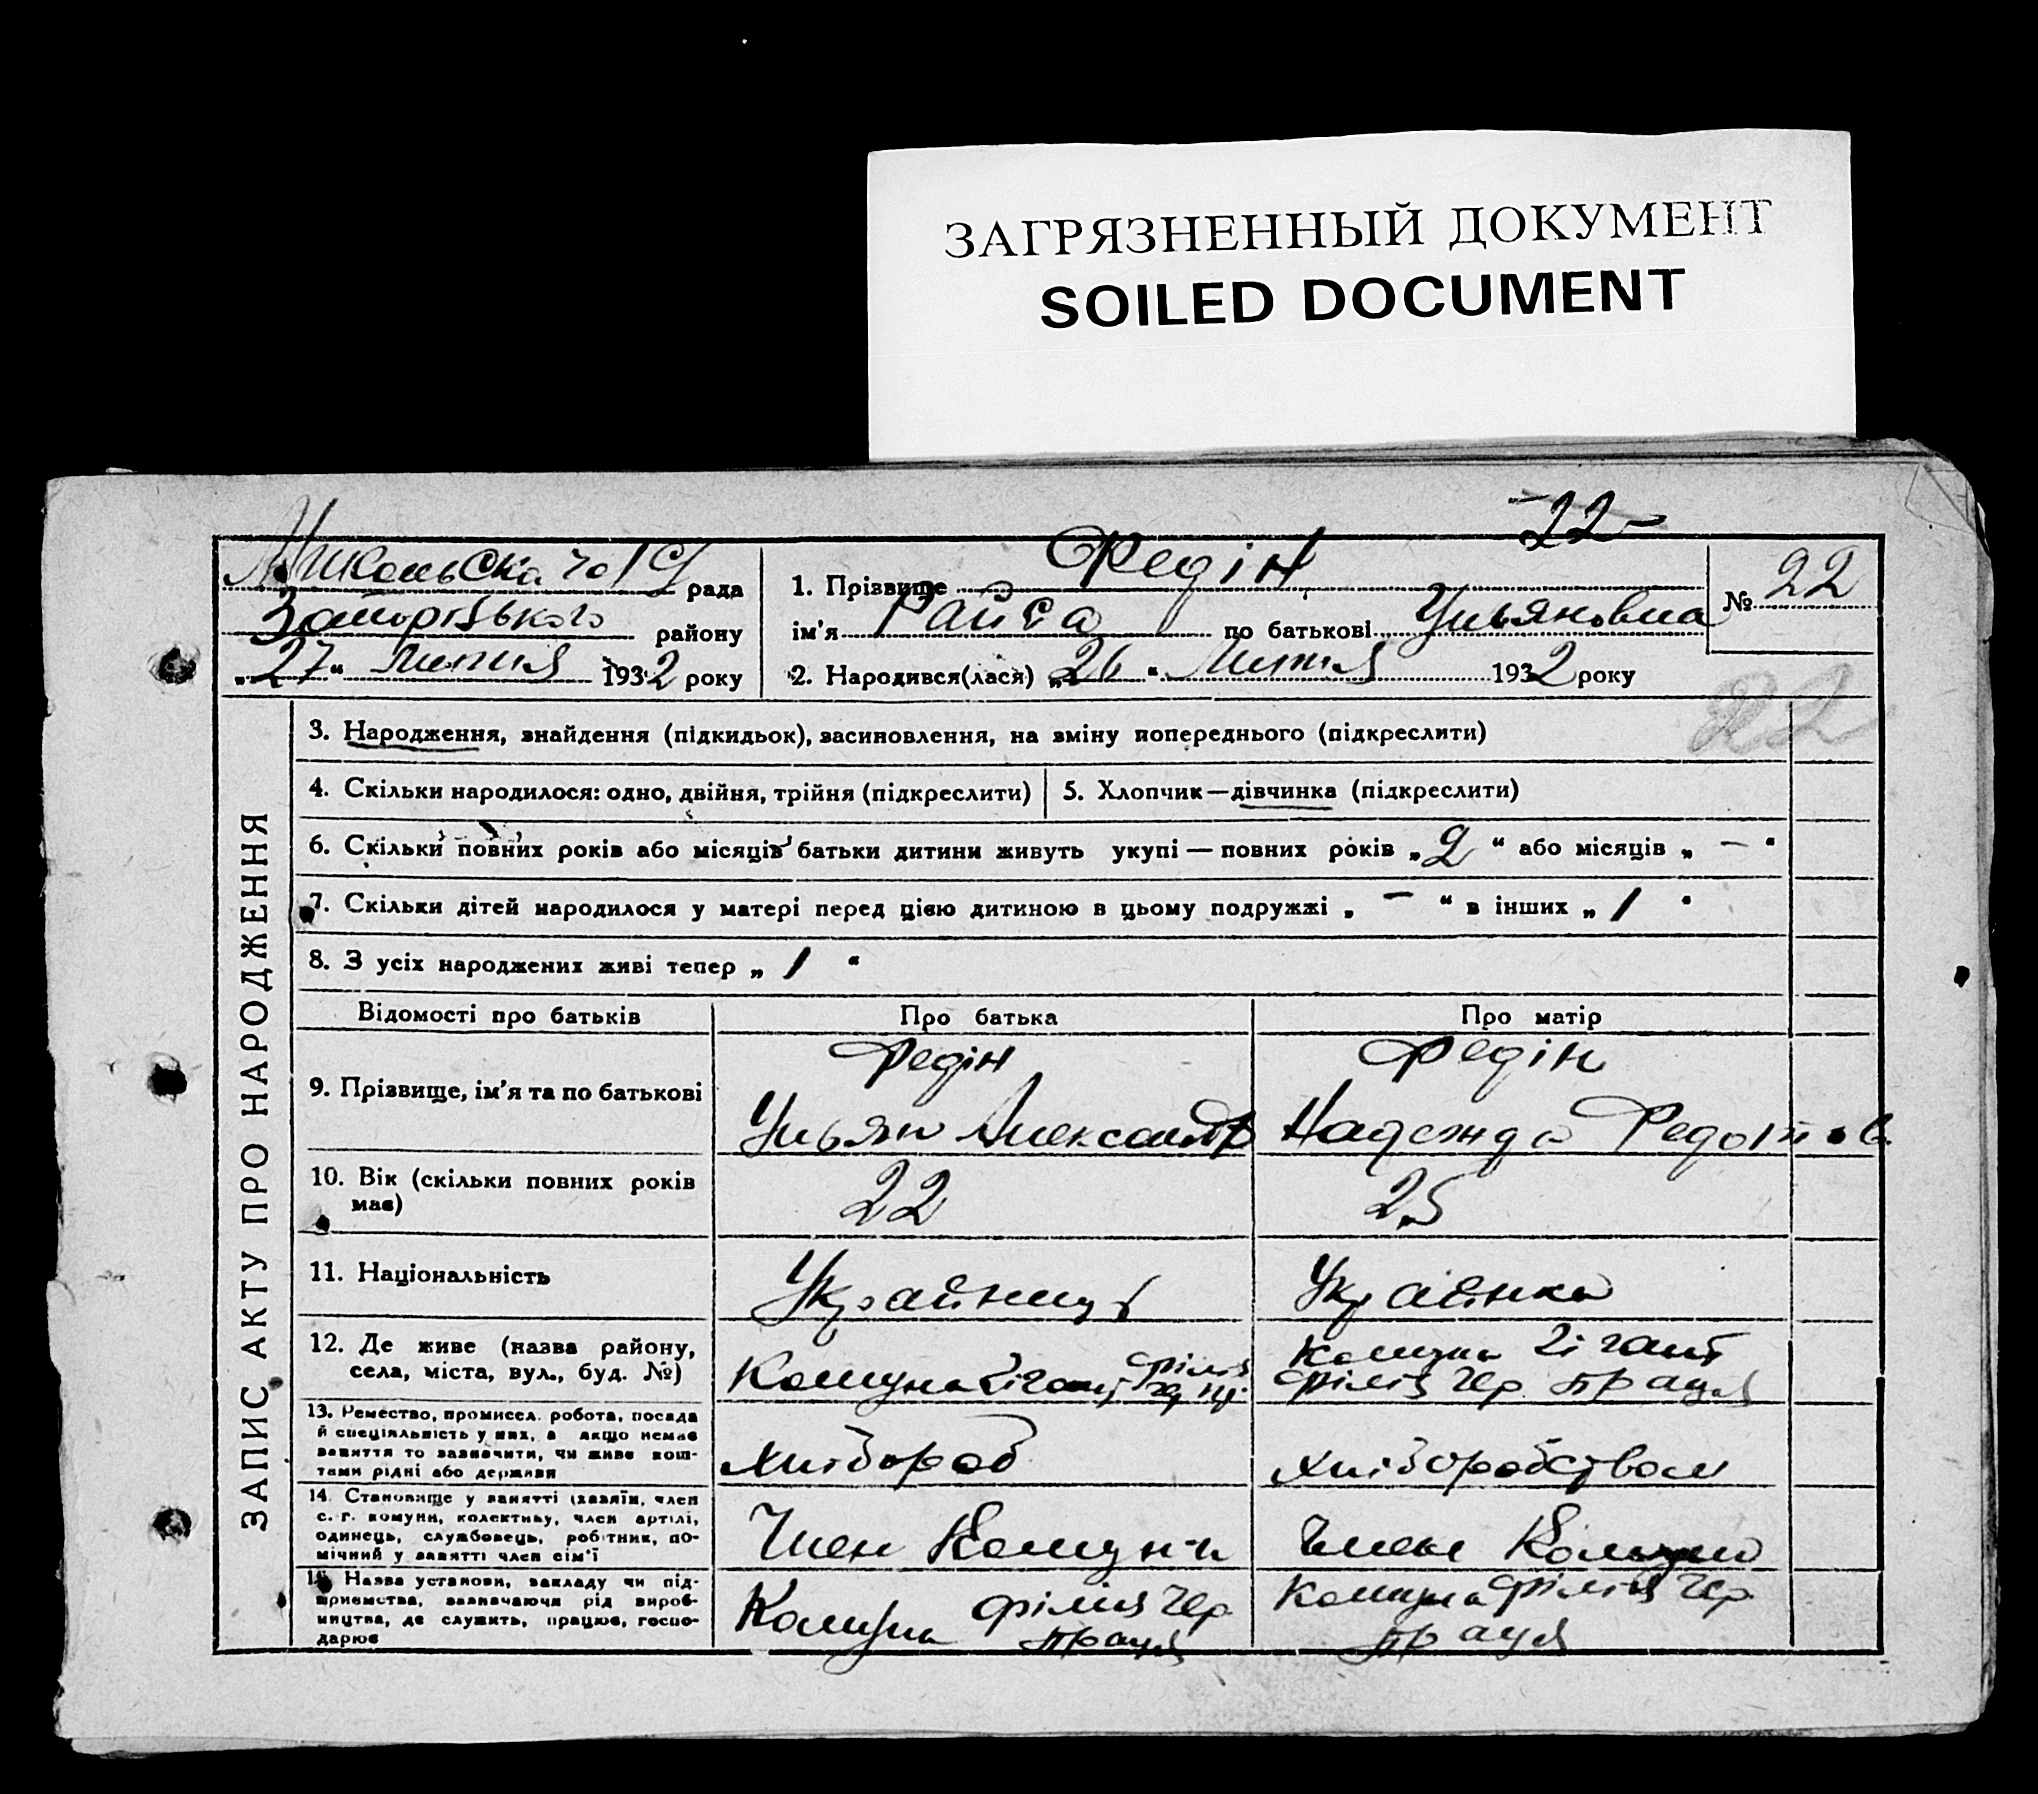 ЗАГРЯЗНЕННЫЙ ДОКУМЕНТ
SOILED DOCUMENT
22
рада
Запорізького району
„27“ Липня 1932 року
1. Прізвище Федін
ім'я Раїса по батькові Ульяновна
№ 22
2. Народився(лася) „26“ Липня 1932 року
22
ЗАПИС АКТУ ПРО НАРОДЖЕННЯ
3. Народження, знайдення (підкидьок), засиновлення, на зміну попереднього (підкреслити)
4. Скільки народилося: одно, двійня, трійня (підкреслити) 5. Хлопчик—дівчинка (підкреслити)
6. Скільки повних років або місяців батьки дитини живуть укупі — повних років „2“ або місяців „ — “
7. Скільки дітей народилося у матері перед цією дитиною в цьому подружжі „ — “ в інших „ 1 “
8. З усіх народжених живі тепер „ 1 “
Відомості про батьків Про батька Про матір
9. Прізвище, ім'я та по батькові
Федін
Ульян Александр
Федін
Надежда Федотов
10. Вік (скільки повних років
має)
22
25
11. Національність
Українець
Українка
12. Де живе (назва району,
села, міста, вул., буд. №)
Комуна Гігант філія
Комуна Гігант
філія Чер Праця
13. Ремество, промисел, робота, посада
й спеціяльність у них, а якщо немає
заняття то зазначити, чи живе кош-
тами рідні або держави
Хлібороб
Хліборобством
14. Становище у занятті (хазяїн, член
с.-г. комуни, колективу, член артілі,
одинець, службовець, робітник, по-
мічний у занятті член сім'ї
Член Комуни
Член Комуни
15. Назва установи, закладу чи під-
приємства, зазначаючи рід вироб-
ництва, де служить, працює, госпо-
дарює
Комуна філія Чер
Праця
Комуна філія Чер
Праця